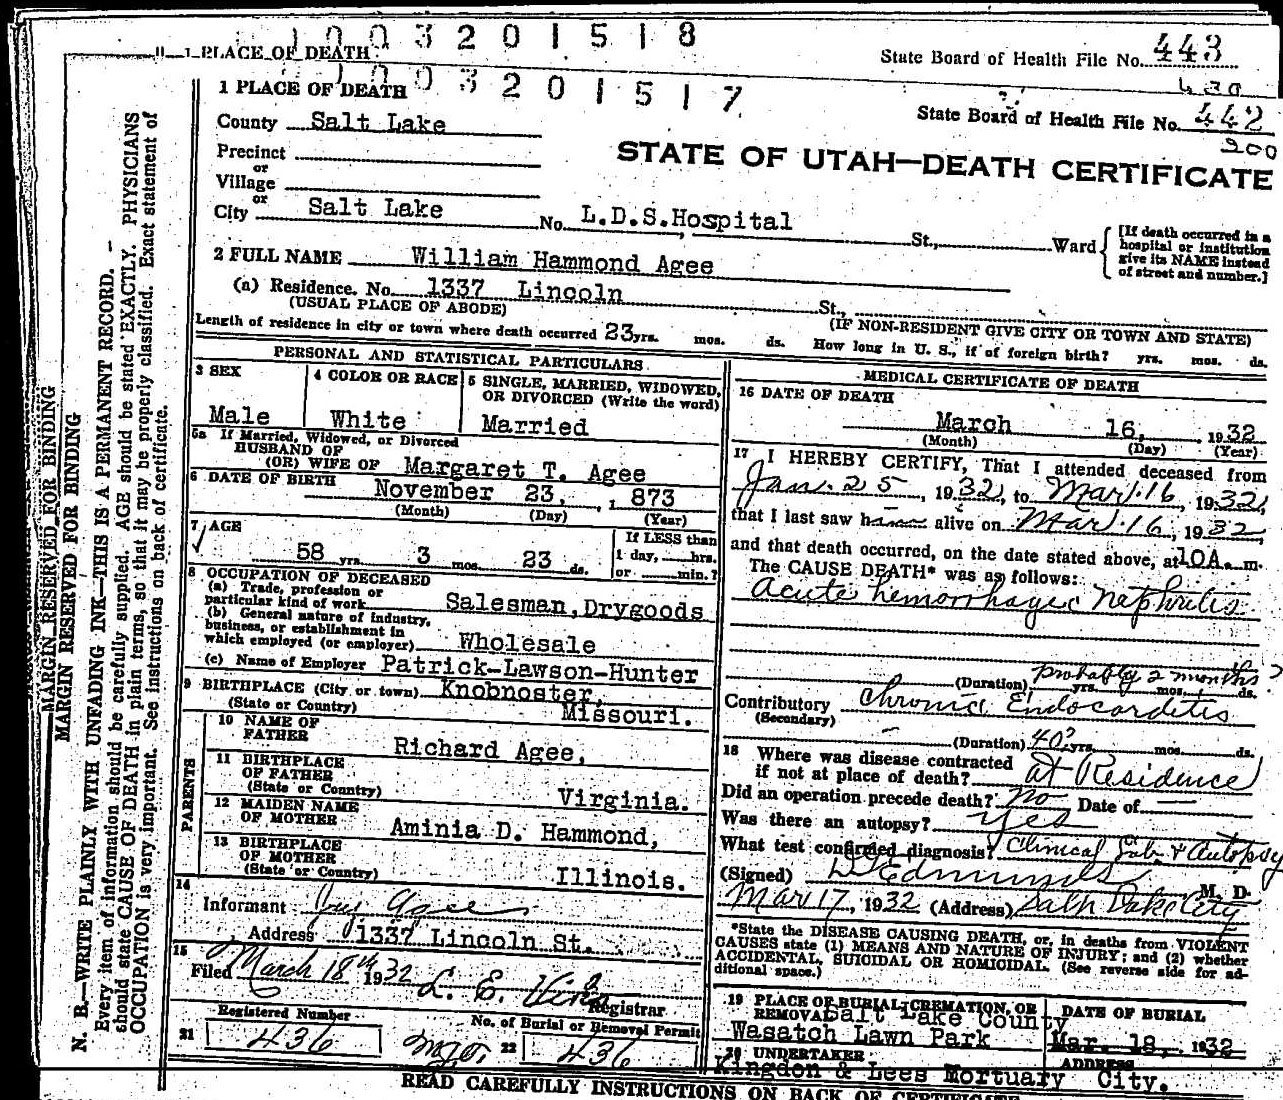 1 0 0 3 2 0 1 5 1 8
1 PLACE OF DEATH
State Board of Health File No. 443
1 0 0 3 2 0 1 5 1 7
1 PLACE OF DEATH
State Board of Health File No. 442
200
County Salt Lake
STATE OF UTAH—DEATH CERTIFICATE
Precinct
or
Village
or
City Salt Lake No. L.D.S.Hospital St., Ward
[If death occurred in a hospital or institution give its NAME instead of street and number.]
2 FULL NAME William Hammond Agee
(a) Residence. No. 1337 Lincoln St.,
(USUAL PLACE OF ABODE) (IF NON-RESIDENT GIVE CITY OR TOWN AND STATE)
Length of residence in city or town where death occurred 23 yrs. mos. ds. How long in U. S., if of foreign birth? yrs. mos. ds.
PERSONAL AND STATISTICAL PARTICULARS
3 SEX 4 COLOR OR RACE 5 SINGLE, MARRIED, WIDOWED, OR DIVORCED (Write the word)
Male White Married
5a If Married, Widowed, or Divorced
HUSBAND OF
(OR) WIFE OF Margaret T. Agee
6 DATE OF BIRTH November 23, 1873
(Month) (Day) (Year)
7 AGE
58 yrs. 3 mos. 23 ds.
If LESS than
1 day, hrs.
or min.?
8 OCCUPATION OF DECEASED
(a) Trade, profession or
particular kind of work Salesman, Drygoods
(b) General nature of industry,
business, or establishment in
which employed (or employer) Wholesale
(c) Name of Employer Patrick-Lawson-Hunter
9 BIRTHPLACE (City or town) Knobnoster,
(State or Country) Missouri.
PARENTS
10 NAME OF
FATHER Richard Agee,
11 BIRTHPLACE
OF FATHER
(State or Country) Virginia.
12 MAIDEN NAME
OF MOTHER Aminia D. Hammond,
13 BIRTHPLACE
OF MOTHER
(State or Country) Illinois.
14
Informant Guy Agee
Address 1337 Lincoln St.
15
Filed March 18th 1932 L. E.
Registrar
Registered Number
21 436
No. of Burial or Removal Permit
22 436
MEDICAL CERTIFICATE OF DEATH
16 DATE OF DEATH
March 16, 1932
(Month) (Day) (Year)
17 I HEREBY CERTIFY, That I attended deceased from
Jan. 25, 1932, to Mar. 16, 1932,
that I last saw h alive on Mar. 16, 1932,
and that death occurred, on the date stated above, at 10A. m.
The CAUSE DEATH* was as follows:
Acute hemorrhagic nephritis
probably 2 months?
(Duration) yrs. mos. ds.
Contributory Chronic Endocarditis
(Secondary)
(Duration) 40? yrs. mos. ds.
18 Where was disease contracted
if not at place of death? at Residence
Did an operation precede death? No Date of —
Was there an autopsy? Yes
What test confirmed diagnosis? Clinical Lab & autopsy
(Signed) Edmunds M. D.
Mar 17, 1932 (Address) Salt Lake City
*State the DISEASE CAUSING DEATH, or, in deaths from VIOLENT
CAUSES state (1) MEANS AND NATURE OF INJURY; and (2) whether
ACCIDENTAL, SUICIDAL OR HOMICIDAL. (See reverse side for additional space.)
19 PLACE OF BURIAL, CREMATION, OR
REMOVAL Salt Lake County
Wasatch Lawn Park
DATE OF BURIAL
Mar. 18, 1932
20 UNDERTAKER ADDRESS
Kingdon & Lees Mortuary City.
READ CAREFULLY INSTRUCTIONS ON BACK OF CERTIFICATE
MARGIN RESERVED FOR BINDING
MARGIN RESERVED FOR BINDING
N. B.—WRITE PLAINLY WITH UNFADING INK—THIS IS A PERMANENT RECORD.
Every item of information should be carefully supplied. AGE should be stated EXACTLY. PHYSICIANS
should state CAUSE OF DEATH in plain terms, so that it may be properly classified. Exact statement of
OCCUPATION is very important. See instructions on back of certificate.